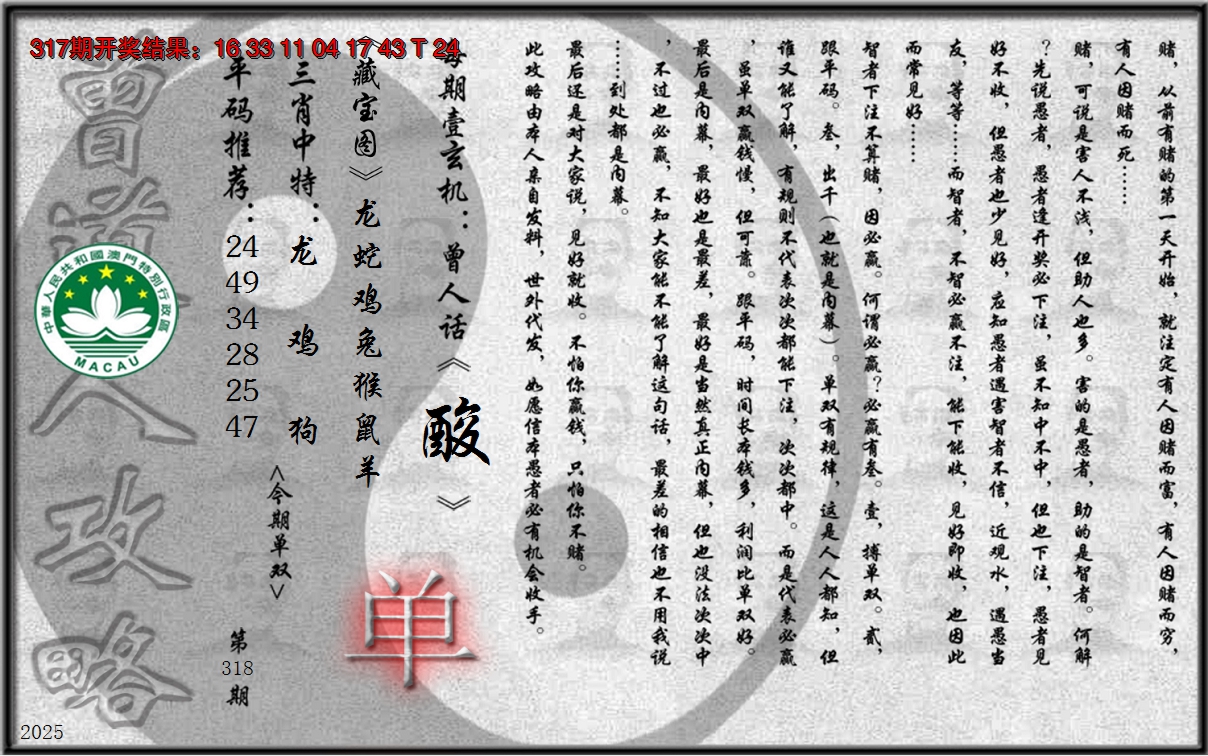 317期开奖结果：16 33 11 04 17 43 T 24
赌，从前有赌的第一天开始，就注定有人因赌而富，有人因赌而穷，
有人因赌而死……
赌，可说是害人不浅，但助人也多。害的是愚者，助的是智者。何解
？先说愚者，愚者逢开奖必下注，虽不知中不中，但也下注，愚者见
好不收，但愚者也少见好，应知愚者遇害智者不信，近观水，遇愚当
友，等等……而智者，不智必赢不注，能下能收，见好即收，也因此
而常见好……
智者下注不算赌，因必赢。何谓必赢？必赢有叁。壹，搏单双。贰，
跟平码。叁，出千（也就是内幕）。单双有规律，这是人人都知，但
谁又能了解，有规则不代表次次都能下注，次次都中。而是代表必赢
，虽单双赢钱慢，但可靠。跟平码，时间长本钱多，利润比单双好。
最后是内幕，最好也是最差，最好是当然真正内幕，但也没法次次中
，不过也必赢，不知大家能不能了解这句话，最差的相信也不用我说
……到处都是内幕。
最后还是对大家说，见好就收。不怕你赢钱，只怕你不赌。
此攻略由本人亲自发料，世外代发，如愿信本愚者必有机会收手。
每期壹玄机：曾人话《酸》
《藏宝图》龙蛇鸡兔猴鼠羊
单
三肖中特：龙 鸡 狗
<今期单双>
平码推荐：24 49 34 28 25 47
第318期
曾道人攻略
中華人民共和國澳門特別行政區
MACAU
2025